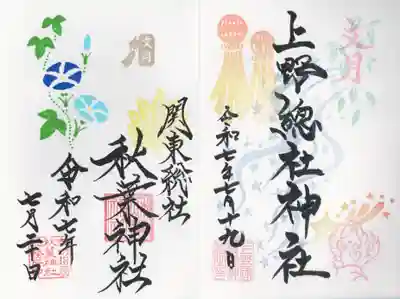 文月
上野總社神社
令和七年七月十九日
文月
関東総社
秋葉神社
令和七年
七月二十日